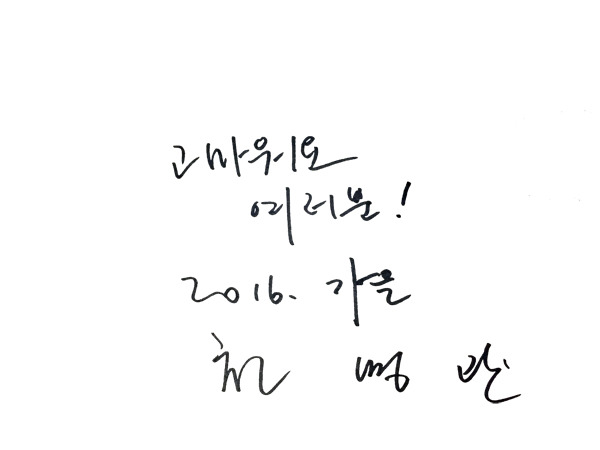 고마워요
여러분!
2016. 가을
최 병 관